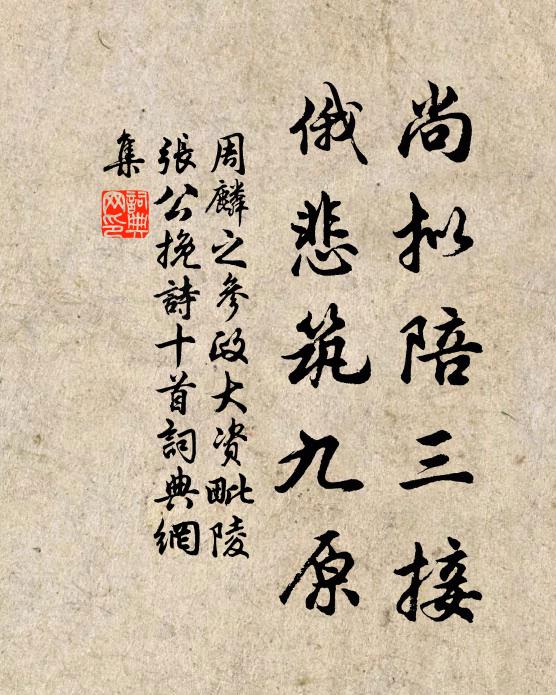 尚拟陪三接
俄悲筑九原
周麟之參政大资毗陵
張公挽詩十首詞典網
集
詞典
网印